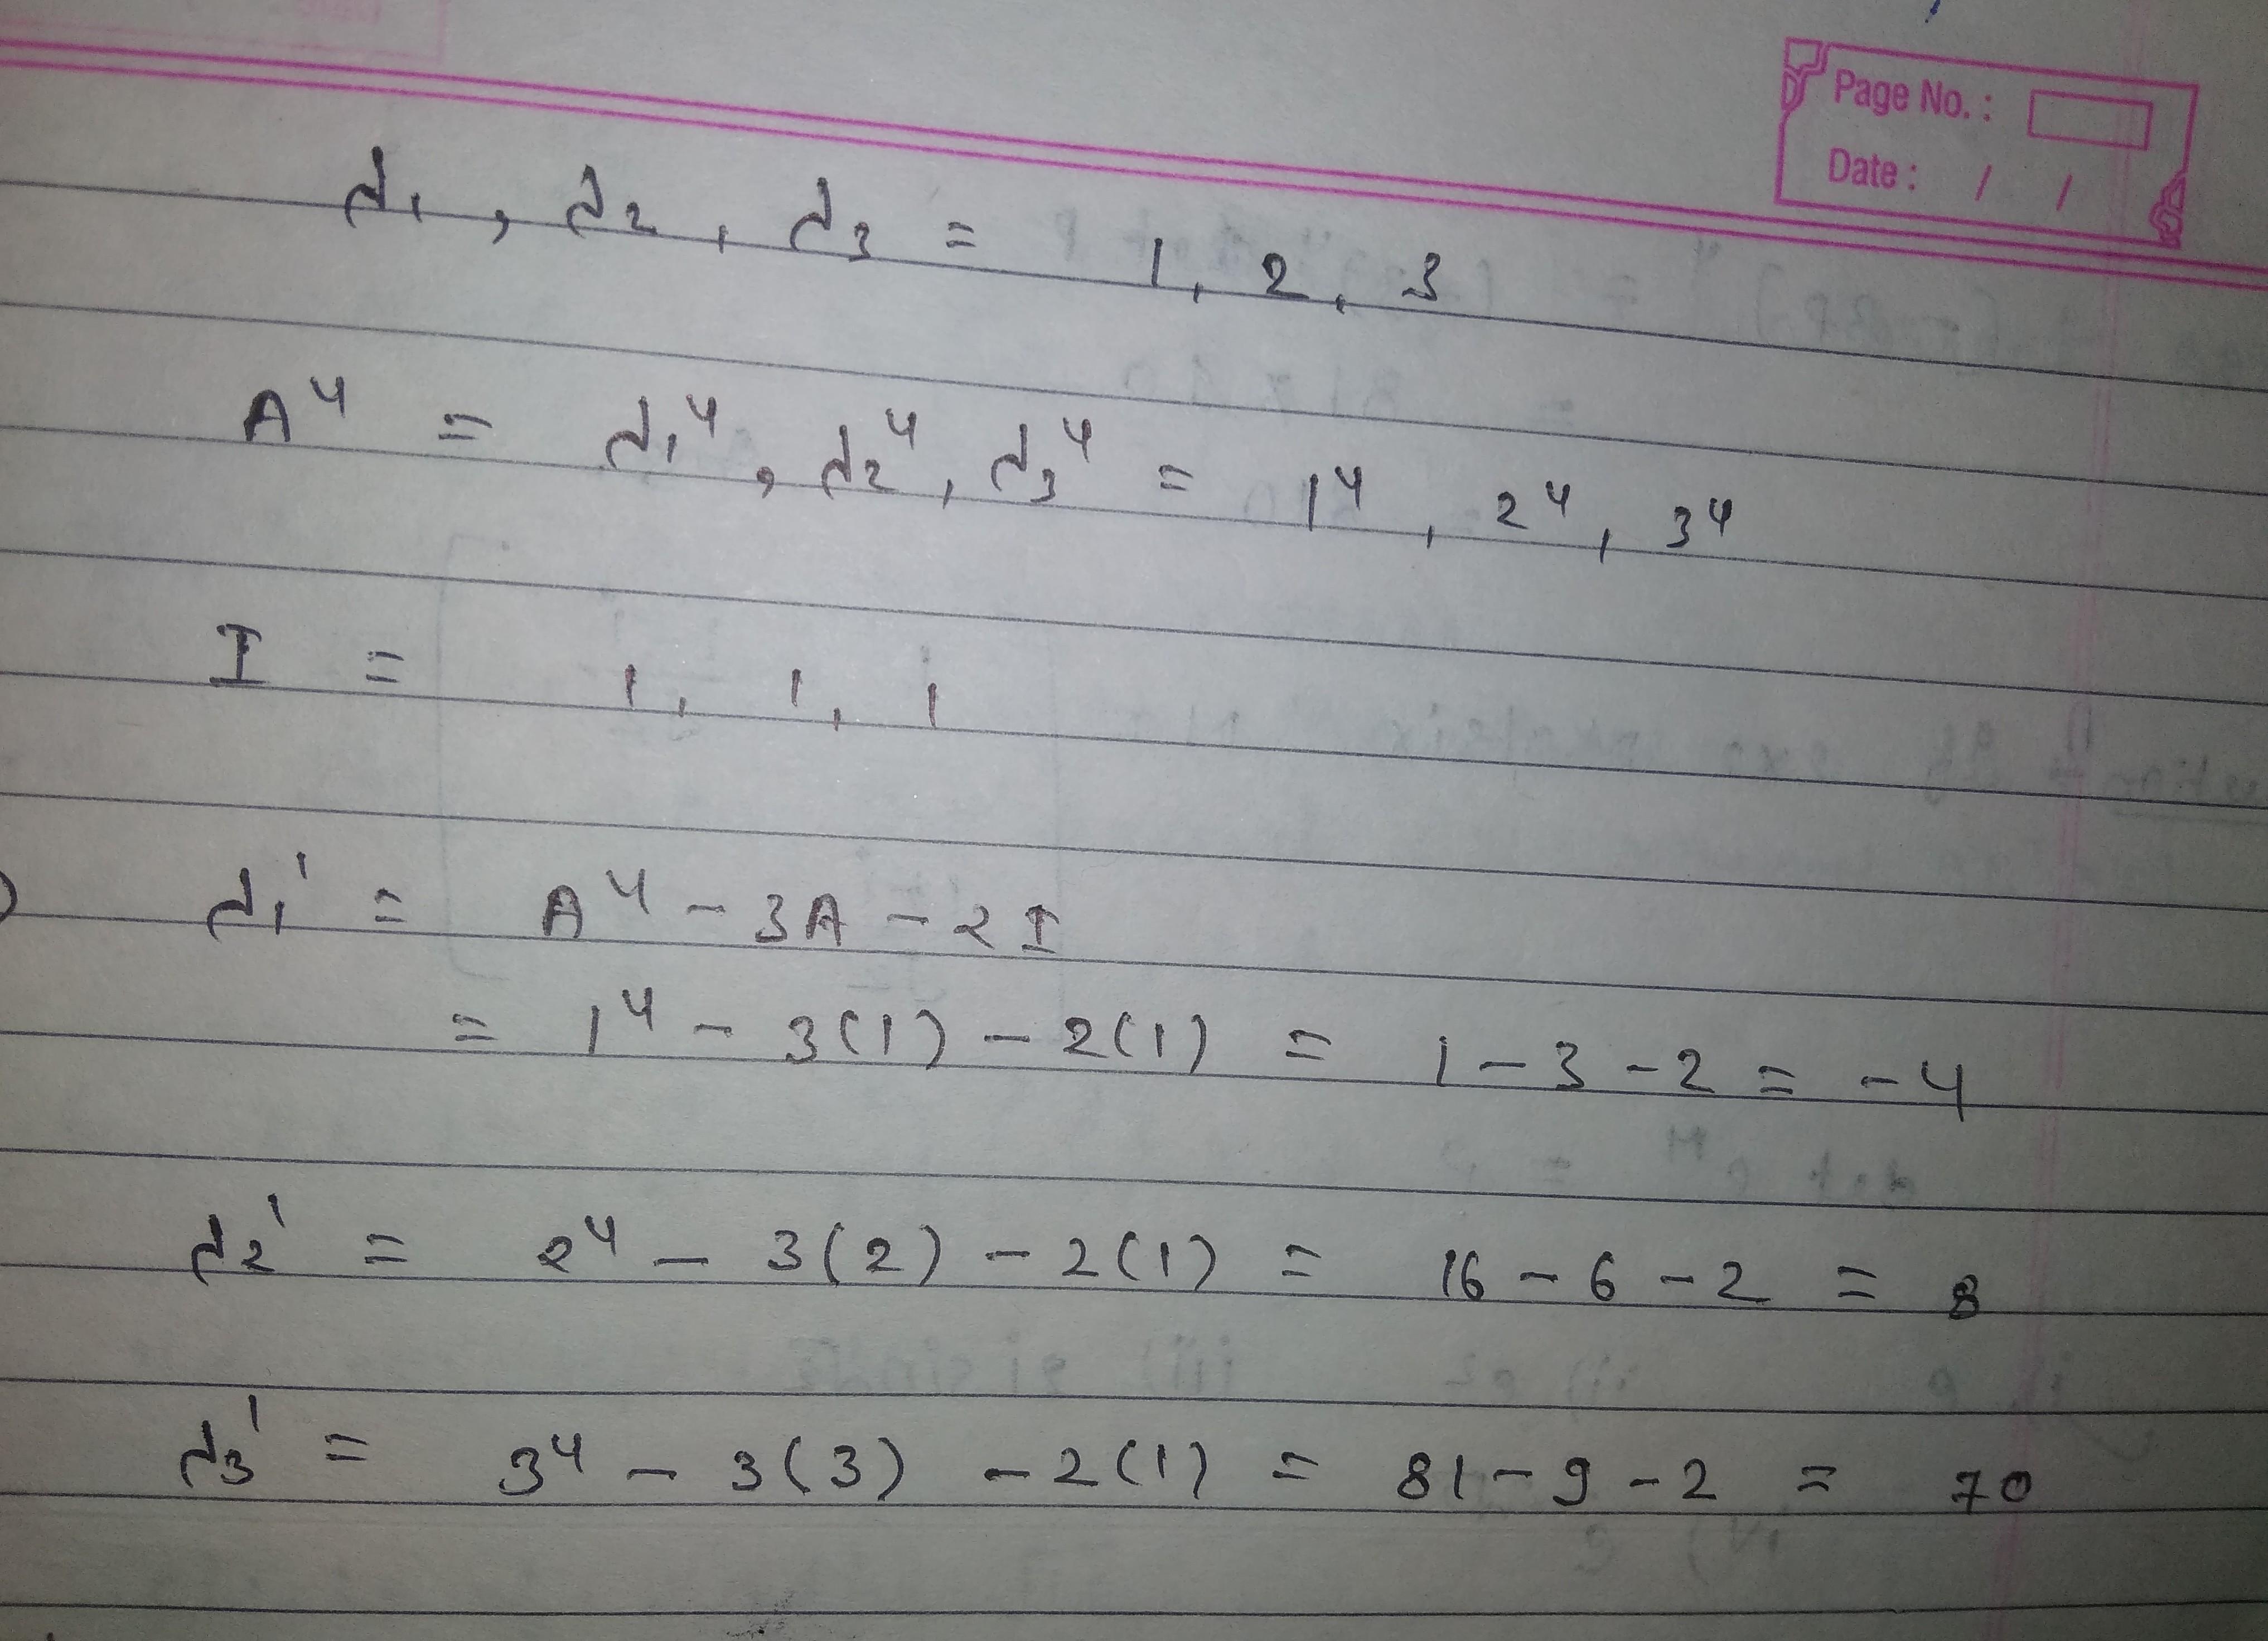 Page No. :
Date : / /
λ₁, λ₂, λ₃ = 1, 2, 3
A⁴ = λ₁⁴, λ₂⁴, λ₃⁴ = 1⁴, 2⁴, 3⁴
I = 1, 1, 1
λ₁' = A⁴ - 3A - 2I
= 1⁴ - 3(1) - 2(1) = 1 - 3 - 2 = -4
λ₂' = 2⁴ - 3(2) - 2(1) = 16 - 6 - 2 = 8
λ₃' = 3⁴ - 3(3) - 2(1) = 81 - 9 - 2 = 70